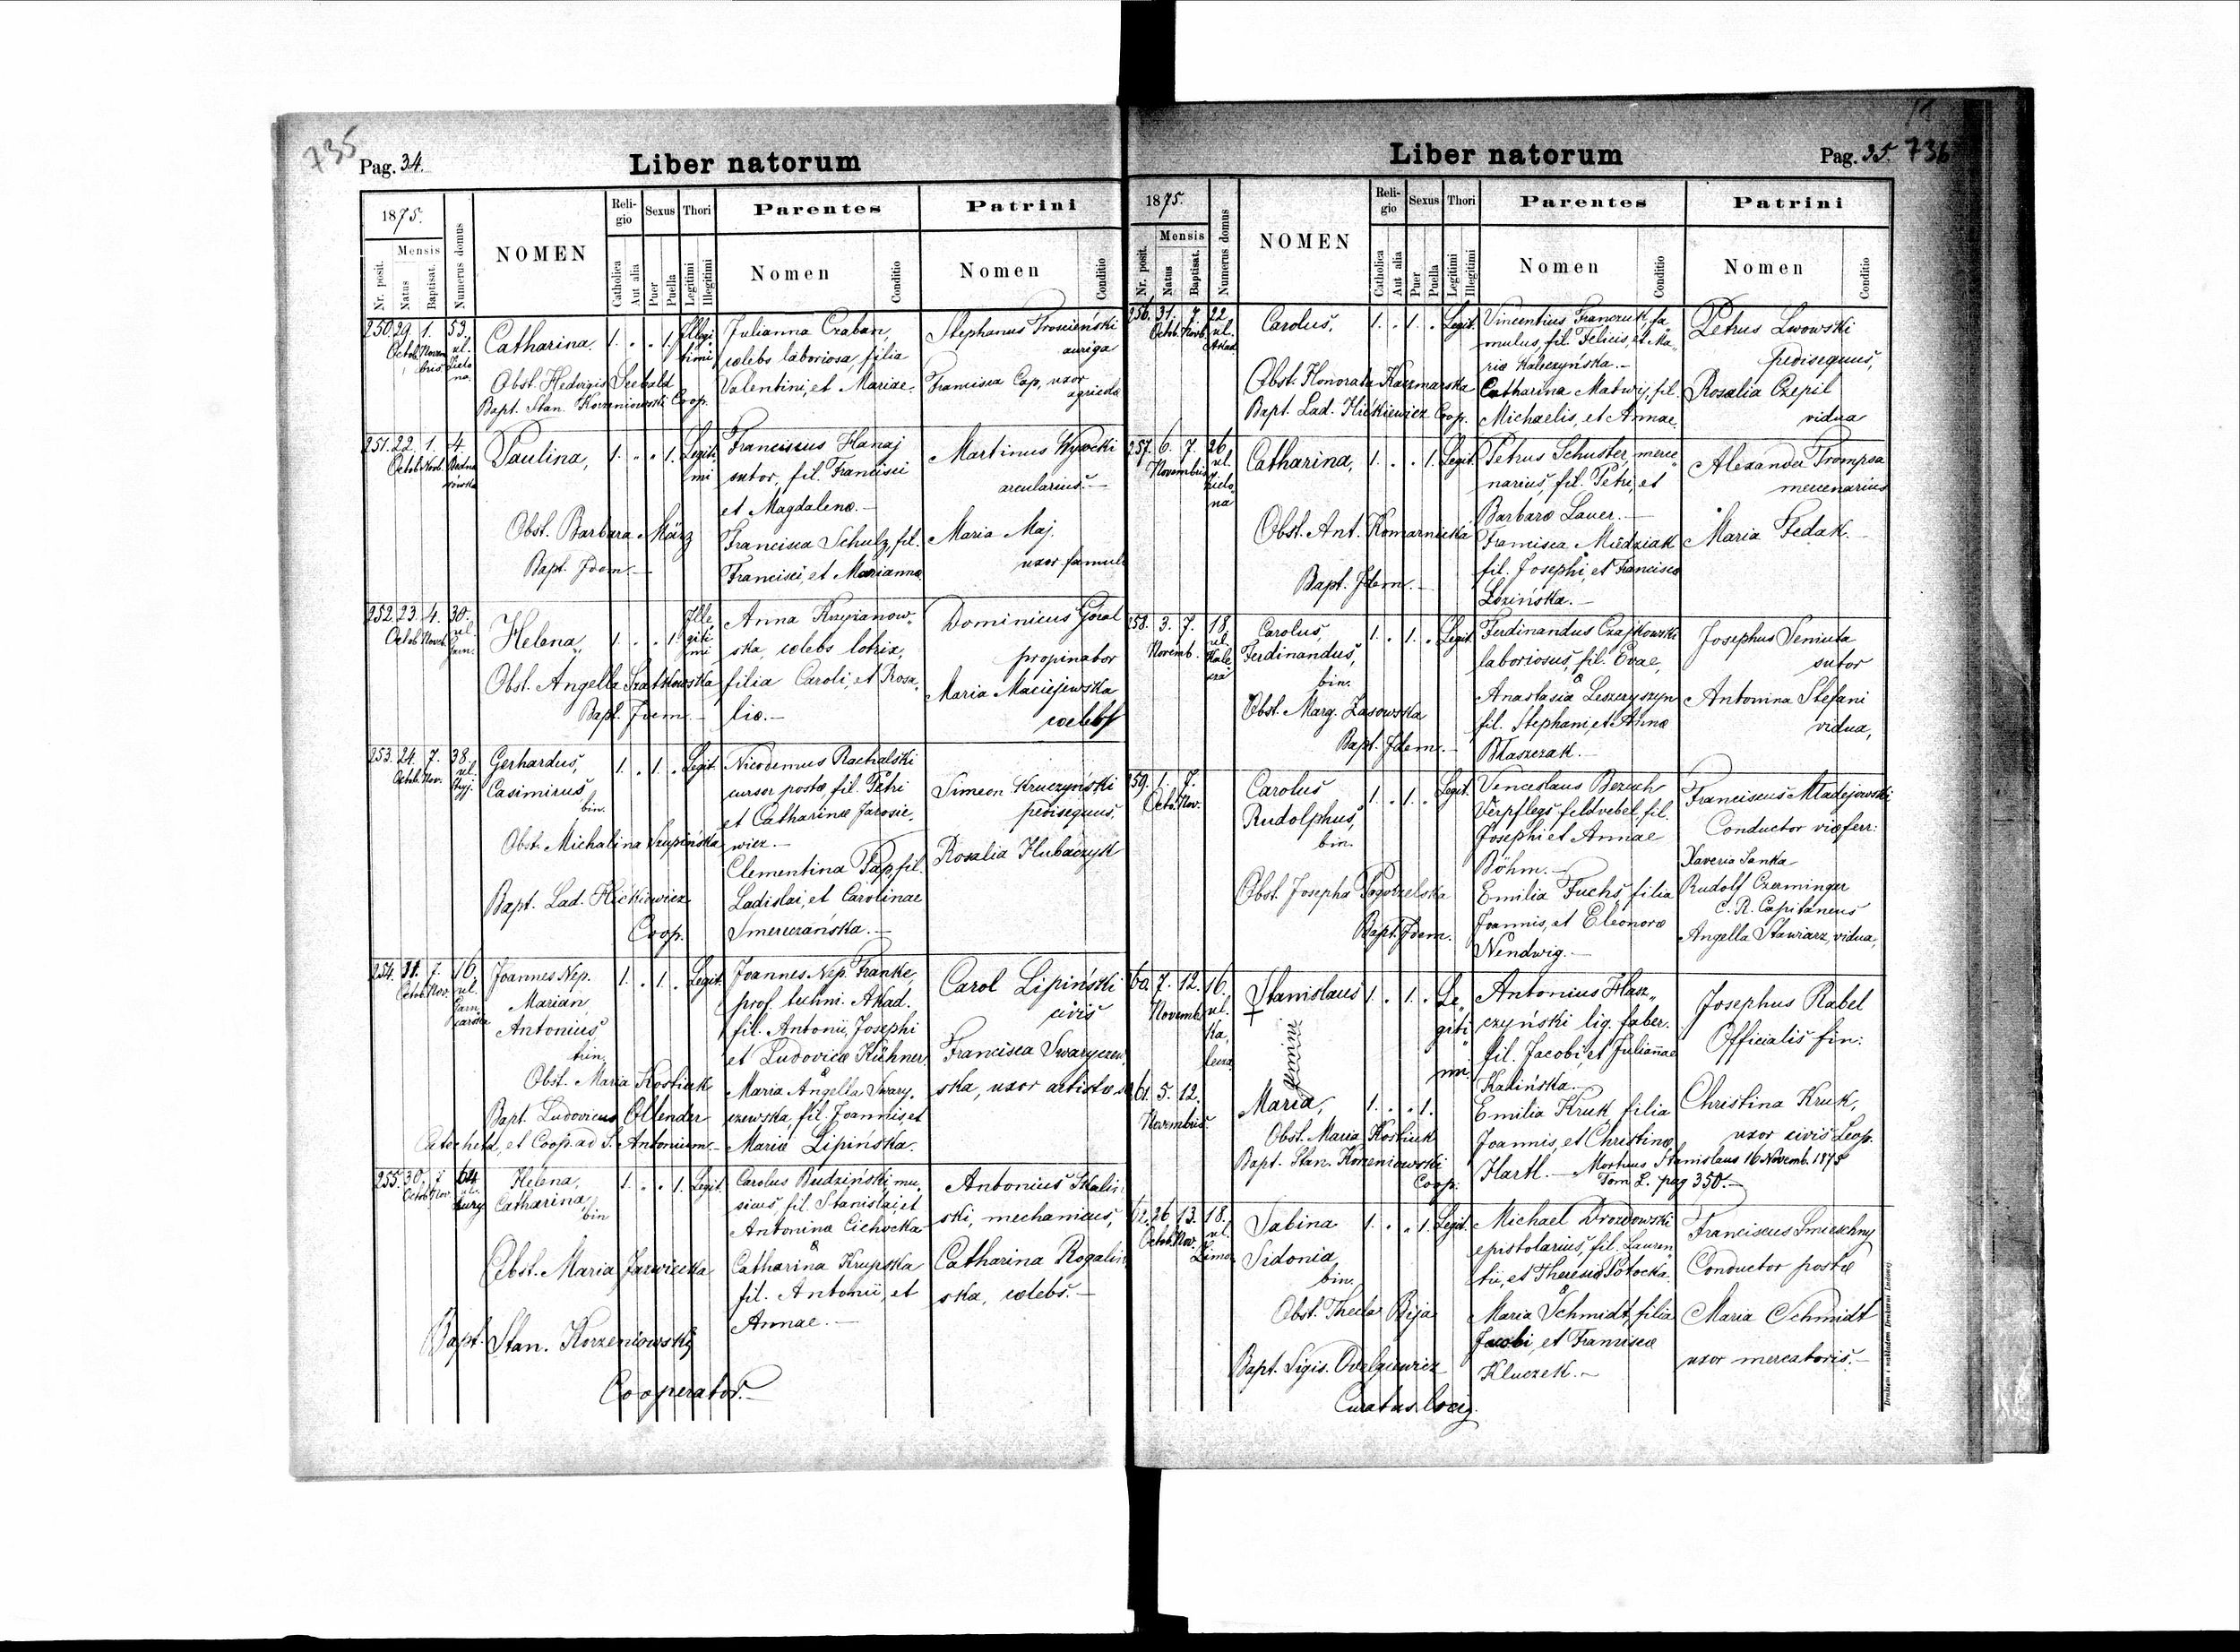 735
Pag. 34.
Liber natorum
1875.
Nr. posit.
Mensis
Natus
Baptisat.
Numerus domus
NOMEN
Religio
Catholica
Aut alia
Sexus
Puer
Puella
Thori
Legitimi
Illegitimi
Parentes
Nomen
Conditio
Patrini
Nomen
Conditio
250. 29. 1. 53. Catharina. 1. . . 1. Illegi
Octob. Novem ul. timi
bris Zielo
na.
Obst. Hedvigis Seebald
Bapt. Stan. Korzeniowski Coop.
Julianna Czaban,
cœlebs laboriosa, filia
Valentini, et Mariae.
Stephanus Trościeński
auriga
Francisca Cap, uxor
agricolæ
251. 22. 1. 4. Paulina, 1. . . 1. Legiti
Octob. Novb. mi
Obst. Barbara März
Bapt. Idem.—
Franciscus Hanaj
sutor, fil. Francisci
et Magdalenæ.—
Francisca Schulz, fil.
Francisci, et Mariannæ
Martinus Wysocki
arcularius.—
Maria Maj.
uxor famuli
252. 23. 4. 30. Helena, 1. . . 1. Ille
Octob. Novb. ul. giti
Jan. mi
Obst. Angella Szatkowska
Bapt. Idem.—
Anna Krzyżanow-
ska, cœlebs lotrix,
filia Caroli, et Rosa-
liæ.—
Dominicus Góral
propinator
Maria Maciejewska
cœlebs
253. 24. 7. 38. Gerhardus, 1. . 1. . Legit.
Octob. Nov. ul. Casimirus
Stryj. bin.
Obst. Michalina Szupińska
Bapt. Lad. Hickiewicz
Coop.
Nicodemus Rachalski
cursor postæ, fil. Petri
et Catharinæ Jarosie-
wicz.—
Clementina Pap, fil.
Ladislai, et Carolinae
Smereczańska.—
Simeon Kruczyński
pedisequus.
Rosalia Hubaczyk
254. 31. 7. 16. Joannes Nep. 1. . 1. . Legit.
Octob. Nov. ul. Marian
Garn Antonius,
carska trin.
Obst. Maria Kostiuk
Bapt. Ludovicus Ollender
Catecheta, et Coop. ad S. Antonium.—
Joannes Nep. Franke,
prof. techni. Akad.
fil. Antonii, Josephi
et Ludovicæ Kühner.
&
Maria Angella Swary-
czewska, fil. Joannis, et
Mariæ Lipińska.
Carol Lipiński
civis
Francisca Swaryczew
ska, uxor artistæ
255. 30. 7. 64 Helena, 1. . . 1. Legit.
Octob. Nov. Catharina,
bin
Obst. Maria Jazwiecka
Bapt. Stan. Korzeniowski
Cooperator.—
Carolus Budziński mu-
sicus, fil. Stanislai, et
Antoninæ Cichocka
&
Catharina Krupska
fil. Antonii, et
Annae.—
Antonius Skalin
ski, mechanicus,
Catharina Rogalin
ska, cœlebs.—
Liber natorum
Pag. 35. 736
1875.
Nr. posit.
Mensis
Natus
Baptisat.
Numerus domus
NOMEN
Religio
Catholica
Aut alia
Sexus
Puer
Puella
Thori
Legitimi
Illegitimi
Parentes
Nomen
Conditio
Patrini
Nomen
Conditio
256. 31. 7. 22 Carolus, 1. . 1. . Legit.
Octob. Novb. ul.
Akad.
Obst. Honorata Kaczmarska
Bapt. Lad. Hickiewicz Coop.
Vincentius Franczuk, fa-
mulus, fil. Felicis, et Ma-
riæ Kalczyńska.—
Catharina Matwij, fil.
Michaelis, et Annae.
Petrus Lwowski
pedisequus,
Rosalia Czepil
vidua
257. 6. 7. 26 Catharina, 1. . . 1. Legit.
Novembris ul.
Zielo
na
Obst. Ant. Komarnicka
Bapt. Idem.—
Petrus Schuster, merce-
narius, fil. Petri, et
Barbaræ Lauer.—
Francisca Miedziak
fil. Josephi, et Franciscæ
Łozińska.—
Alexander Trompsa
mercenarius
Maria Fedak.—
258. 3. 7. 18. Carolus, 1. . 1. . Legit.
Novemb. ul. Ferdinandus,
Kale bin.
cza
Obst. Marg. Zasowska
Bapt. Idem.—
Ferdinandus Czajkowski
laboriosus, fil. Evae,
&
Anastasia Leszczyszyn
fil. Stephani, et Annæ
Błaszczak.—
Josephus Seniuta
sutor
Antonina Stefani
vidua,
259. 1. 7. Carolus 1. . 1. . Legit.
Octb. Nov. Rudolphus,
bin.
Obst. Josepha Pogorzelska
Bapt. Idem.
Venceslaus Bezuch
Verpflegs feldvebel, fil.
Josephi et Annae
Böhm.—
Emilia Fuchs, filia
Joannis, et Eleonoræ
Nendwig.—
Franciscus Madejowski
Conductor viæ ferr:
Xaveria Sanka
Rudolf Czerminger
C. R. Capitaneus
Angella Stawiarz, vidua,
60. 7. 12. 16. Stanislaus 1. . 1. . Le
Novemb. ul. giti
Ka, mi.
lecza
Gemini
61. 5. 12. Maria, 1. . . 1.
Novembris
Obst. Maria Kostiuk
Bapt. Stan. Korzeniowski
Coop.
Antonius Hasz-
czyński lig. faber.
fil. Jacobi, et Juliannae
Kalińska.—
Emilia Kruk filia
Joannis, et Christinæ
Hartl.— Mortuus Stanislaus 16 Novemb. 1875
Tom L. pag 350.—
Josephus Rabel
Officialis fin:
Christina Kruk,
uxor civis Leop.
62. 26. 13. 18. Sabina 1. . . 1. Legit.
Octob. Nov. ul. Sidonia
Zimo. bin.
Obst. Thecla Bija
Bapt. Sigis. Odelgiewicz
Curatus loci
Michael Drozdowski
epistolarius, fil. Lauren-
tii, et Theresiæ Potocka.
&
Maria Schmidt, filia
Jacobi, et Franciscæ
Kluczek.—
Franciscus Smieschny
Conductor postæ
Maria Schmidt
uxor mercatoris.—
Drukiem i nakładem Drukarni Ludowej